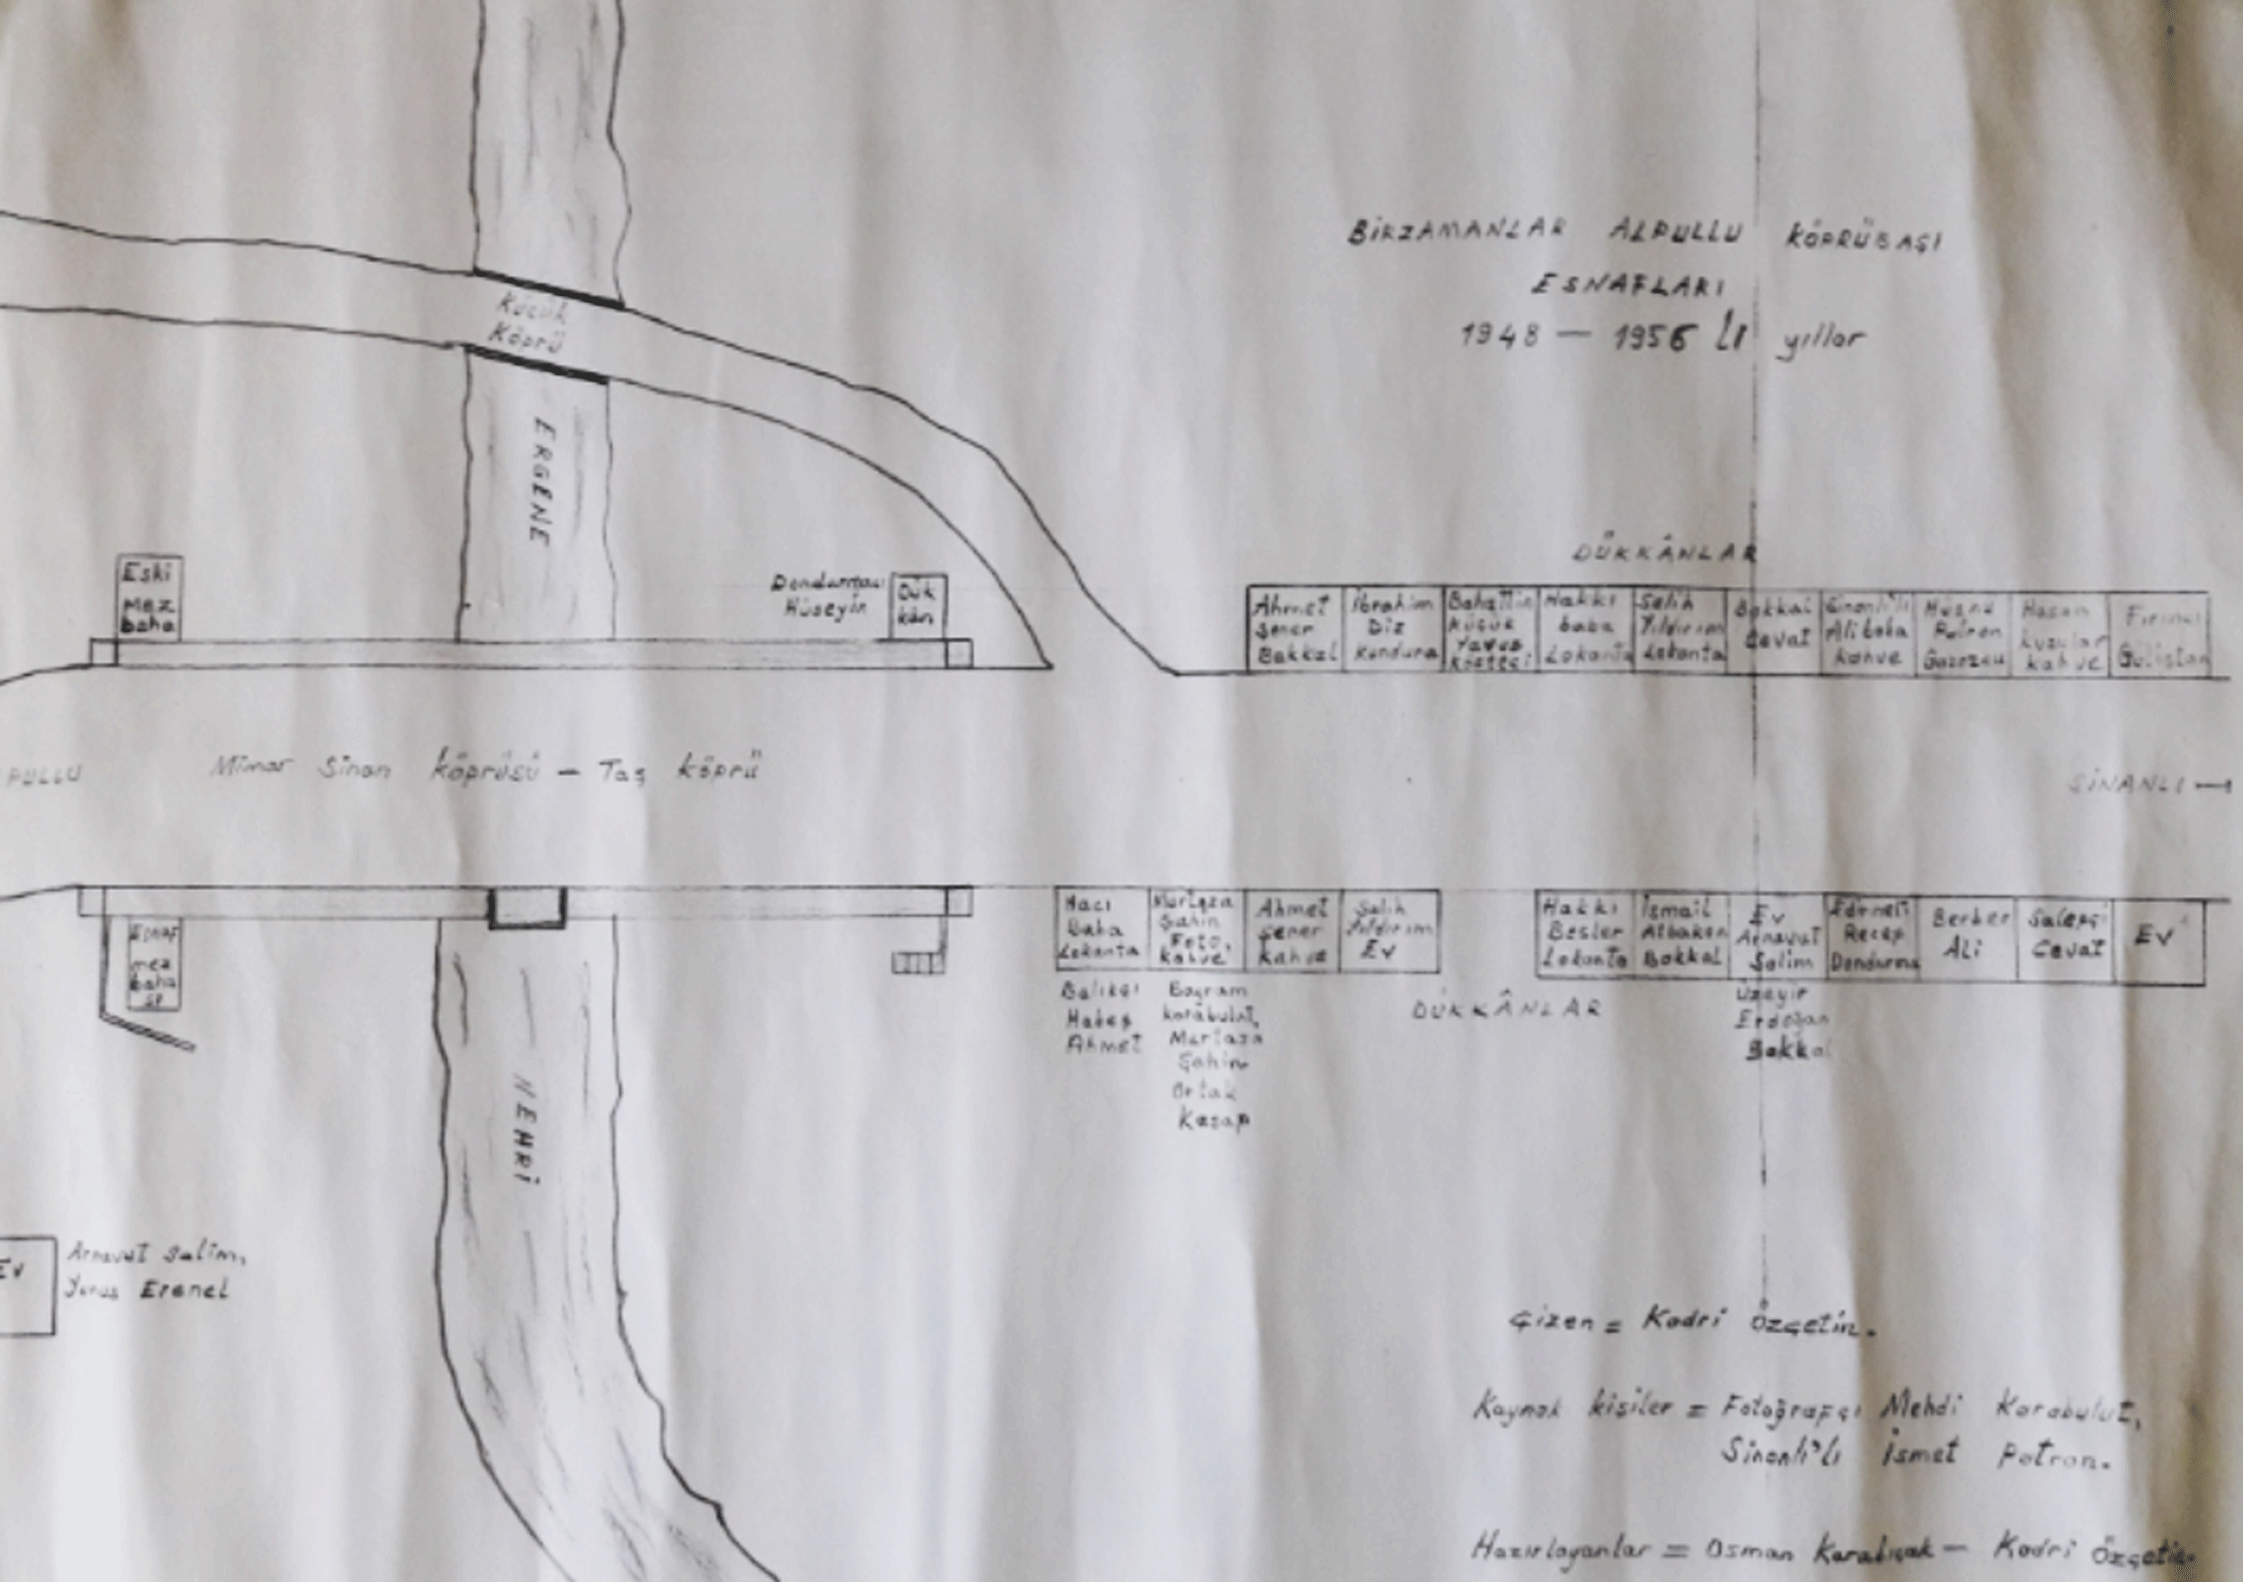 BİRZAMANLAR ALPULLU KÖPRÜBAŞI
ESNAFLARI
1948 — 1956 lı yıllar
Küçük
Köprü
ERGENE
Eski
Mez
baha
Dondurmacı
Hüseyin
Dük
kân
DÜKKÂNLAR
Ahmet
Şener
Bakkal
İbrahim
Diz
Kundura
Bahattin
Küçük
Yavuz
Köfteci
Hakkı
baba
Lokanta
Salih
Yıldırım
Lokanta
Bakkal
Cevat
Sinanlı'lı
Ali baba
Kahve
Hüsnü
Patron
Gazozcu
Hasan
kuzular
kahve
Fırıncı
Gülistan
PULLU
Mimar Sinan köprüsü — Taş köprü
SİNANLI →
Esnaf
mez
baha
sı
Hacı
Baba
Lokanta
Balıkçı
Habeş
Ahmet
Murtaza
Şahin
Foto,
kahve
Bayram
karabulut,
Murtaza
Şahin
Ortak
Kasap
Ahmet
Şener
Kahve
Salih
Yıldırım
Ev
DÜKKÂNLAR
Hakkı
Besler
Lokanta
İsmail
Albakan
Bakkal
Ev
Arnavut
Salim
Üzeyir
Erdoğan
Bakkal
Edirneli
Recep
Dondurma
Berber
Ali
Salepçi
Cevat
Ev
NEHRİ
Ev
Arnavut Salim,
Yunus Erenel
Çizen = Kadri Özçetin.
Kaynak kişiler = Fotoğrafçı Mehdi Karabulut,
Sinanlı'lı İsmet Patron.
Hazırlayanlar = Osman Karabıçak — Kadri Özçetin.